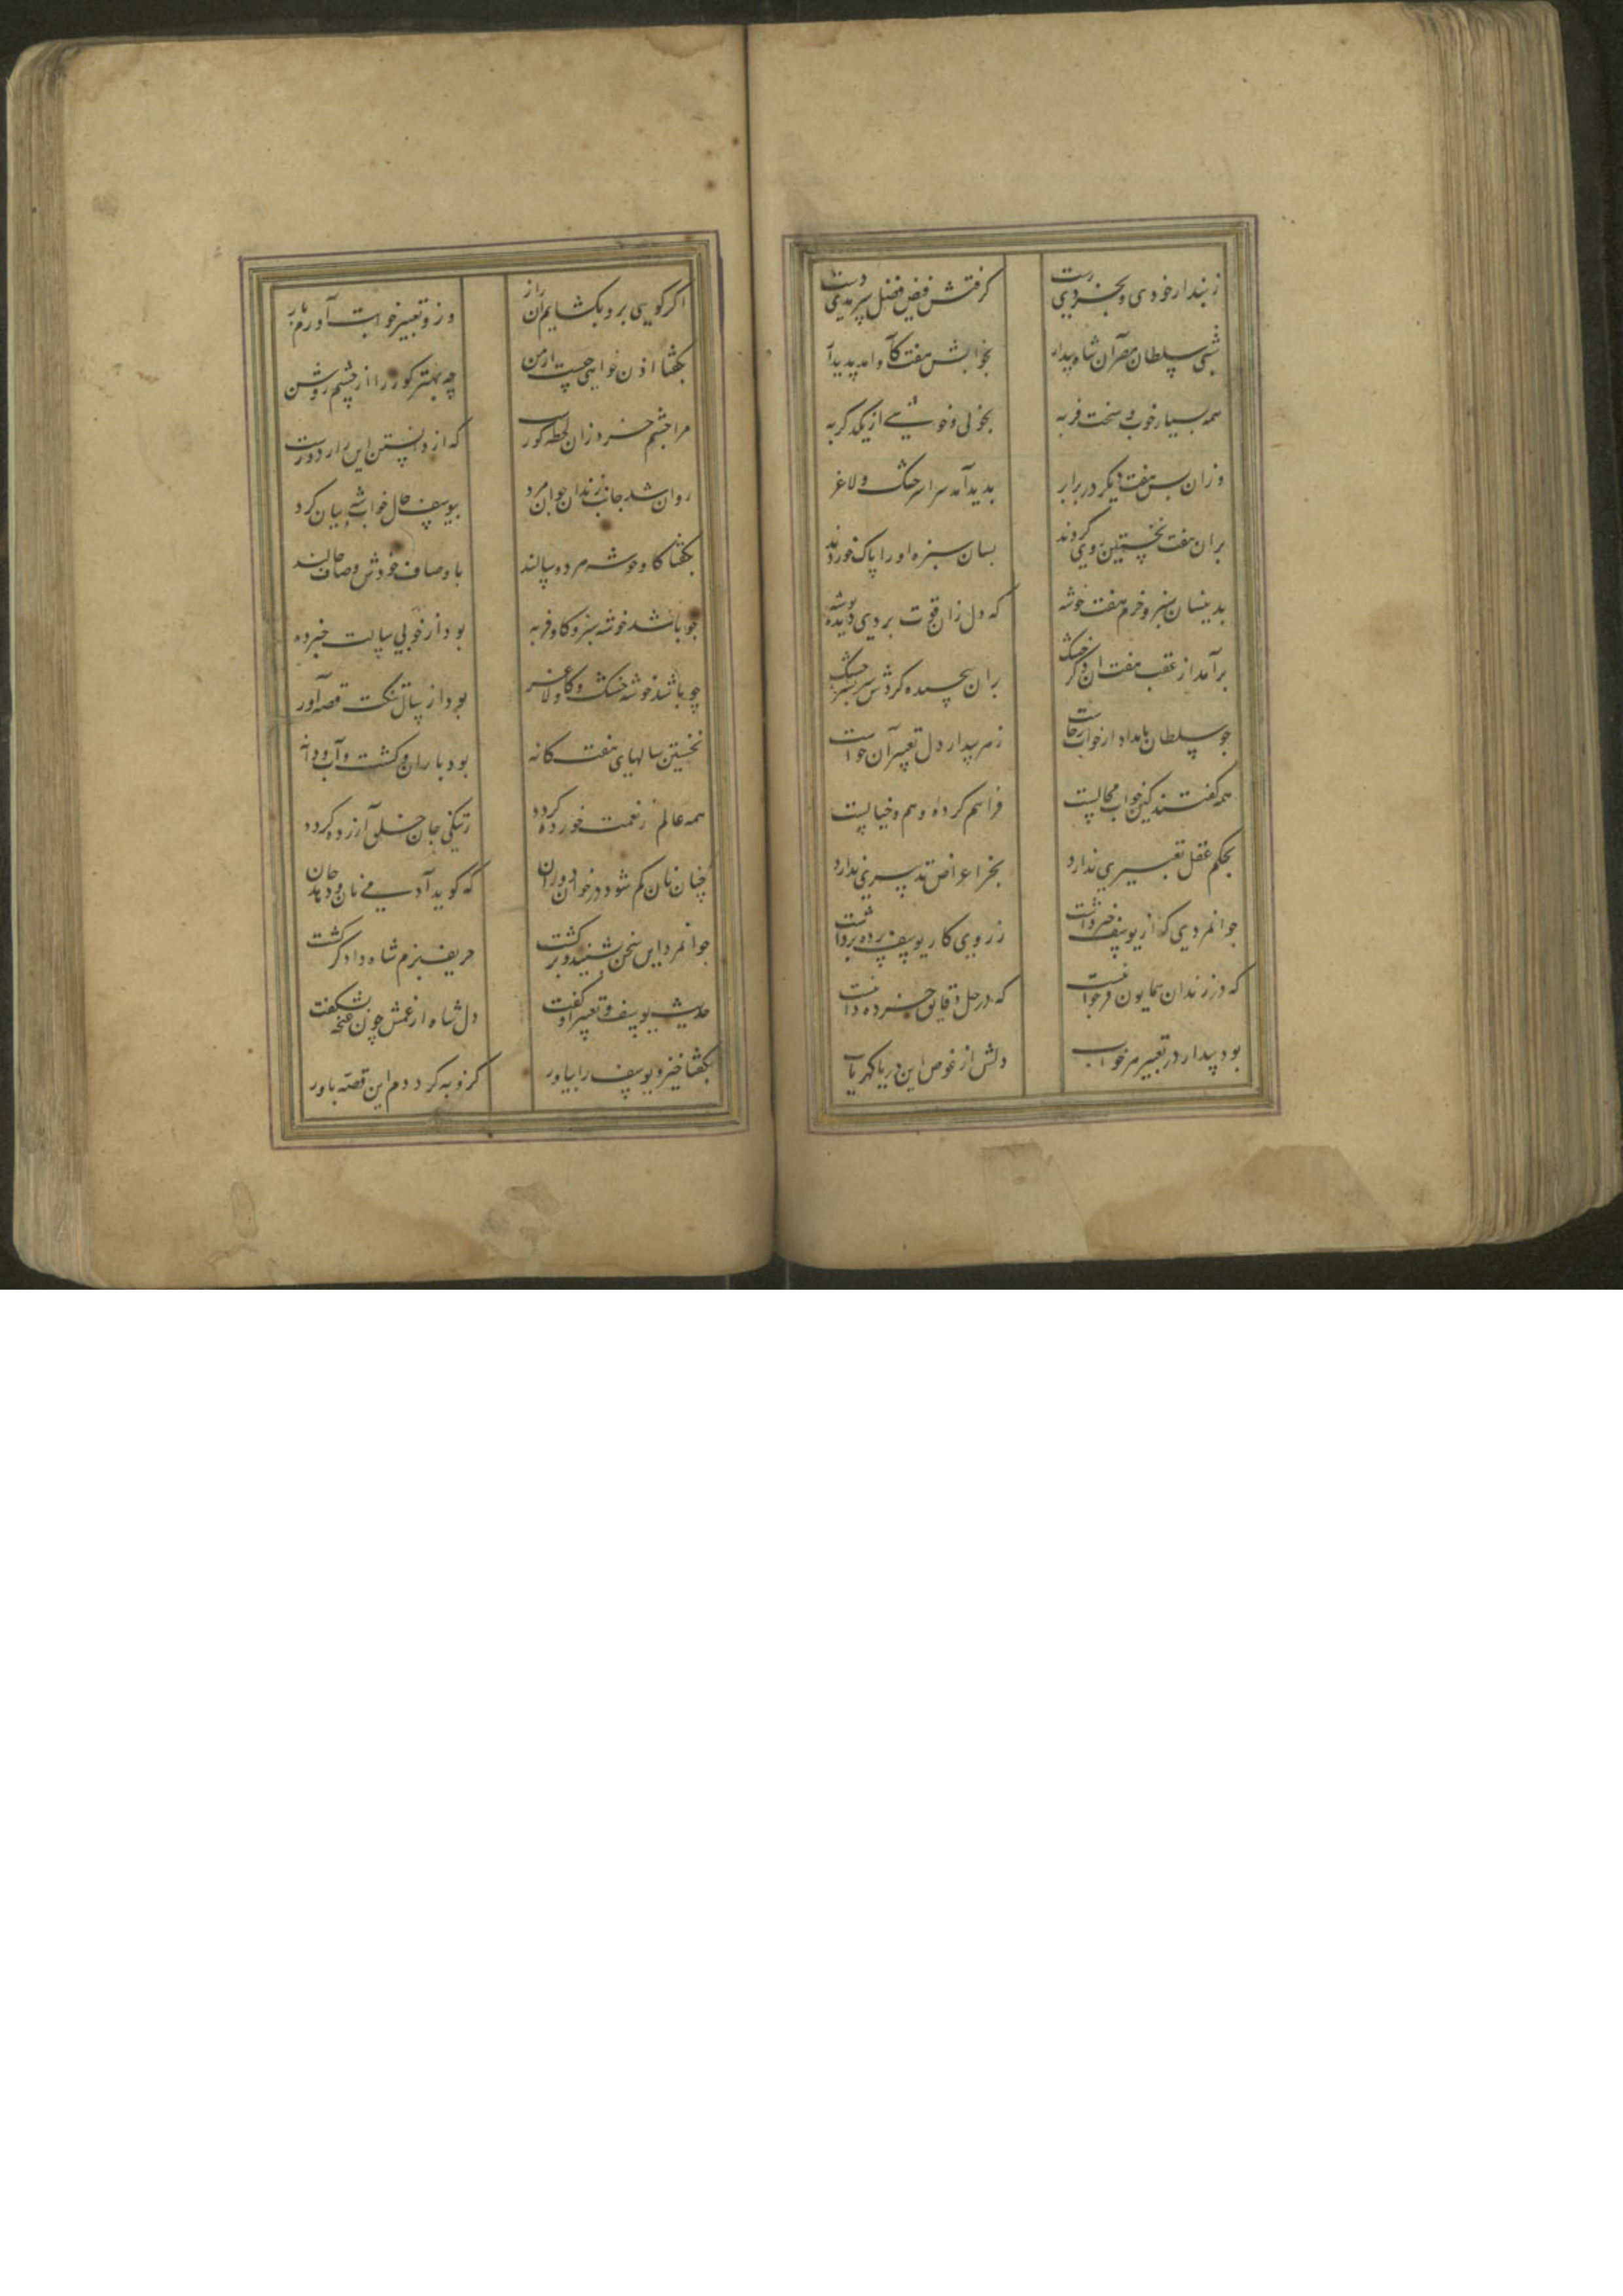 ز پندار خودی و بخردی رست گرفتش فیض فضل سرمدی دست
شبی سلطان مصر آن شاه بیدار بخوابش هفت گاو آمد پدیدار
همه بسیار خوب و سخت فربه بخوبی و خوشی از یکدگر به
وزان پس هفت دیگر در برابر پدید آمد سراسر خشک و لاغر
بران هفت نخستین روی کردند بسان سبزه او را پاک خوردند
بدینسان سبز و خرم هفت خوشه که دل زان قوت بردی دیده توشه
برآمد از عقب هفت دگر خشک بران پیچیده کردش سربسر خشک
چو سلطان بامداد از خواب برخاست ز هر بیدار دل تعبیر آن خواست
همه گفتند کین خواب محالیست فراهم کرده وهم و خیالیست
بحکم عقل تعبیری ندارد بجز اعراض تدبیری ندارد
جوانمردی که از یوسف خبر داشت ز روی کار یوسف پرده برداشت
که در زندان همایون فر جوانیست که در حل دقایق خرده دانیست
بود بیدار در تعبیر هر خواب دلش از غوص این دریا گهر یاب
اگر گویی برو بکشایم این راز وزو تعبیر خوابت آورم باز
بگفتا اذن خواهی چیست از من چه بهتر کور را از چشم روشن
مرا چشم خرد زان لحظه کورست که از دانستن این راز دورست
روان شد جانب زندان جوانمرد بیوسف حال خواب شه بیان کرد
بگفتا گاو و خوشه هر دو سالند باوصاف خودش وصاف حالند
چو باشد خوشه سبز و گاو فربه بود از خوبی سالت خبرده
چو باشد خوشه خشک و گاو لاغر بود از سال تنگت قصه آور
نخستین سالهای هفت گانه بود باران و کشت و آب و دانه
همه عالم ز نعمت خورده گردد ز تنگی جان خلق آزرده گردد
چنان نان کم شود در خوان دوران که گوید آدمی نان و دهد جان
جوانمرد این سخن بشنید و برگشت حریف بزم شاه دادگر گشت
حدیث یوسف و تعبیر او گفت دل شاه از غمش چون غنچه بشکفت
بگفتا خیز و یوسف را بیاور کزو به گرددم این قصه باور